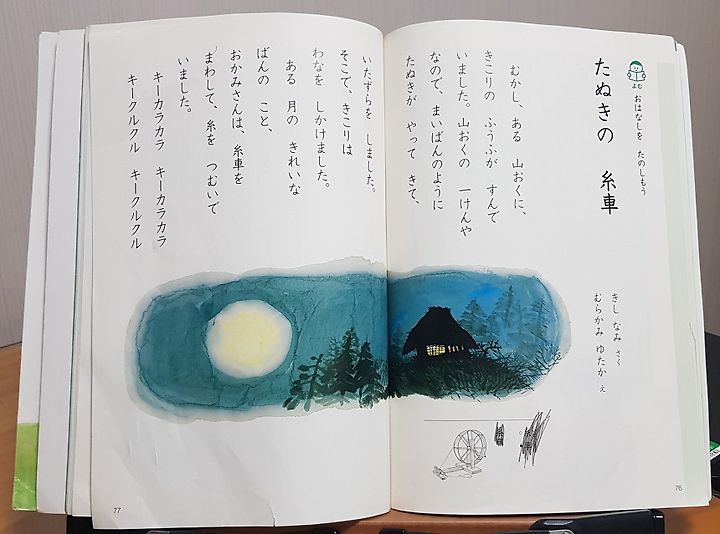 よむ
おはなしを　たのしもう
たぬきの　糸車
きし　なみ　さく
むらかみ　ゆたか　え
むかし、ある　山おくに、
きこりの　ふうふが　すんで
いました。山おくの　一けんや
なので、まいばんのように
たぬきが　やって　きて、
76
いたずらを　しました。
そこで、きこりは
わなを　しかけました。
ある　月の　きれいな
ばんの　こと、
おかみさんは、糸車を
まわして、糸を　つむいで
いました。
キーカラカラ　キーカラカラ
キークルクル　キークルクル
77